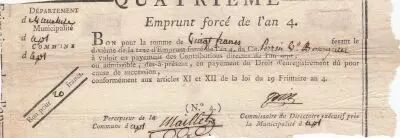 QUATRIEME
Emprunt forcé de l'an 4.
DÉPARTEMENT
d Vaucluse
Municipalité
d'apt
COMMUNE
d apt
BON pour la somme de vingt francs faisant le
dixième de la taxe d'Emprunt forcé de l'an 4. du Cit.
à valoir en payement des Contributions directes de l'an sept
ou admissible, dès-à-présent, en payement du Droit d'enregistrement dû pour
cause de succession,
conformément aux articles XI et XII de la loi du 19 Frimaire an 4.
Bon pour 20 francs
(N.° 4.)
Percepteur de la
Commune d apt
Commissaire du Directoire exécutif près
la Municipalité d apt